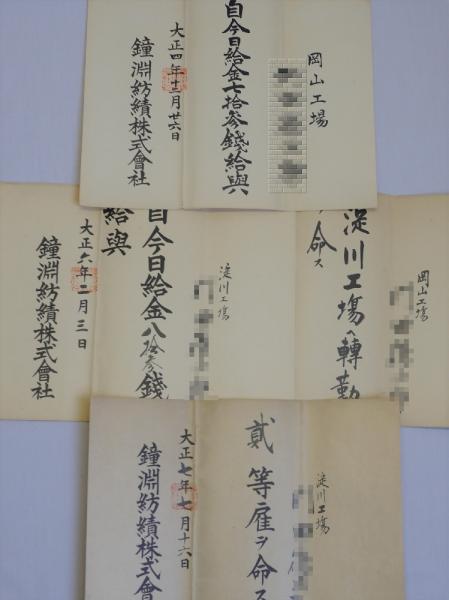 岡山工場
自今日給金七拾参錢給與
大正四年十二月廿六日
鐘淵紡績株式會社
岡山工場
淀川工場ヘ轉勤
ヲ命ス
淀川工場
自今日給金八拾参錢
給與
大正六年二月三日
鐘淵紡績株式會社
淀川工場
貳等雇ヲ命ス
大正七年七月十六日
鐘淵紡績株式會